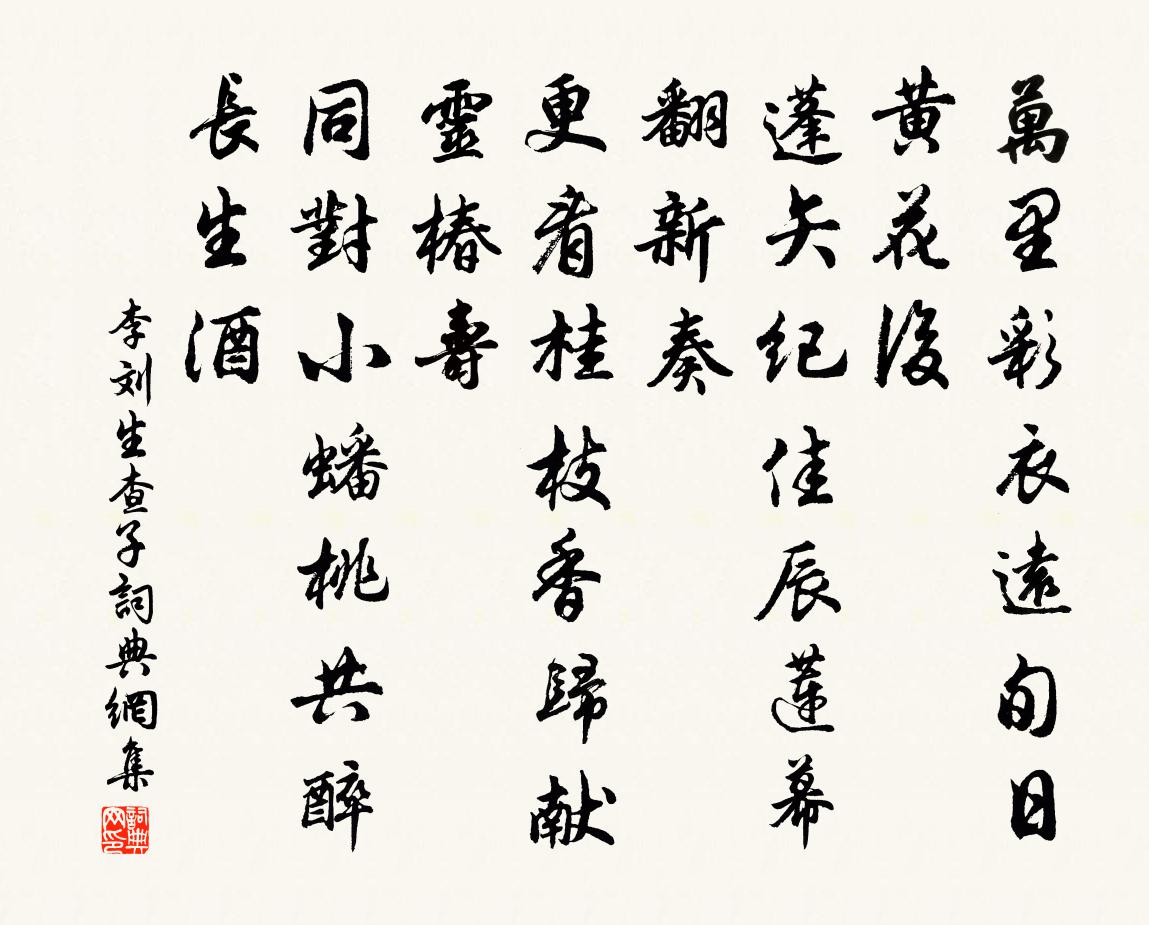 萬里彩衣遠旬日
黄花後
蓬矢紀佳辰蓮幕
翻新奏
更看桂枝香歸献
靈椿壽
同對小蟠桃共醉
長生酒
李刘生查子詞典網集
詞典网印